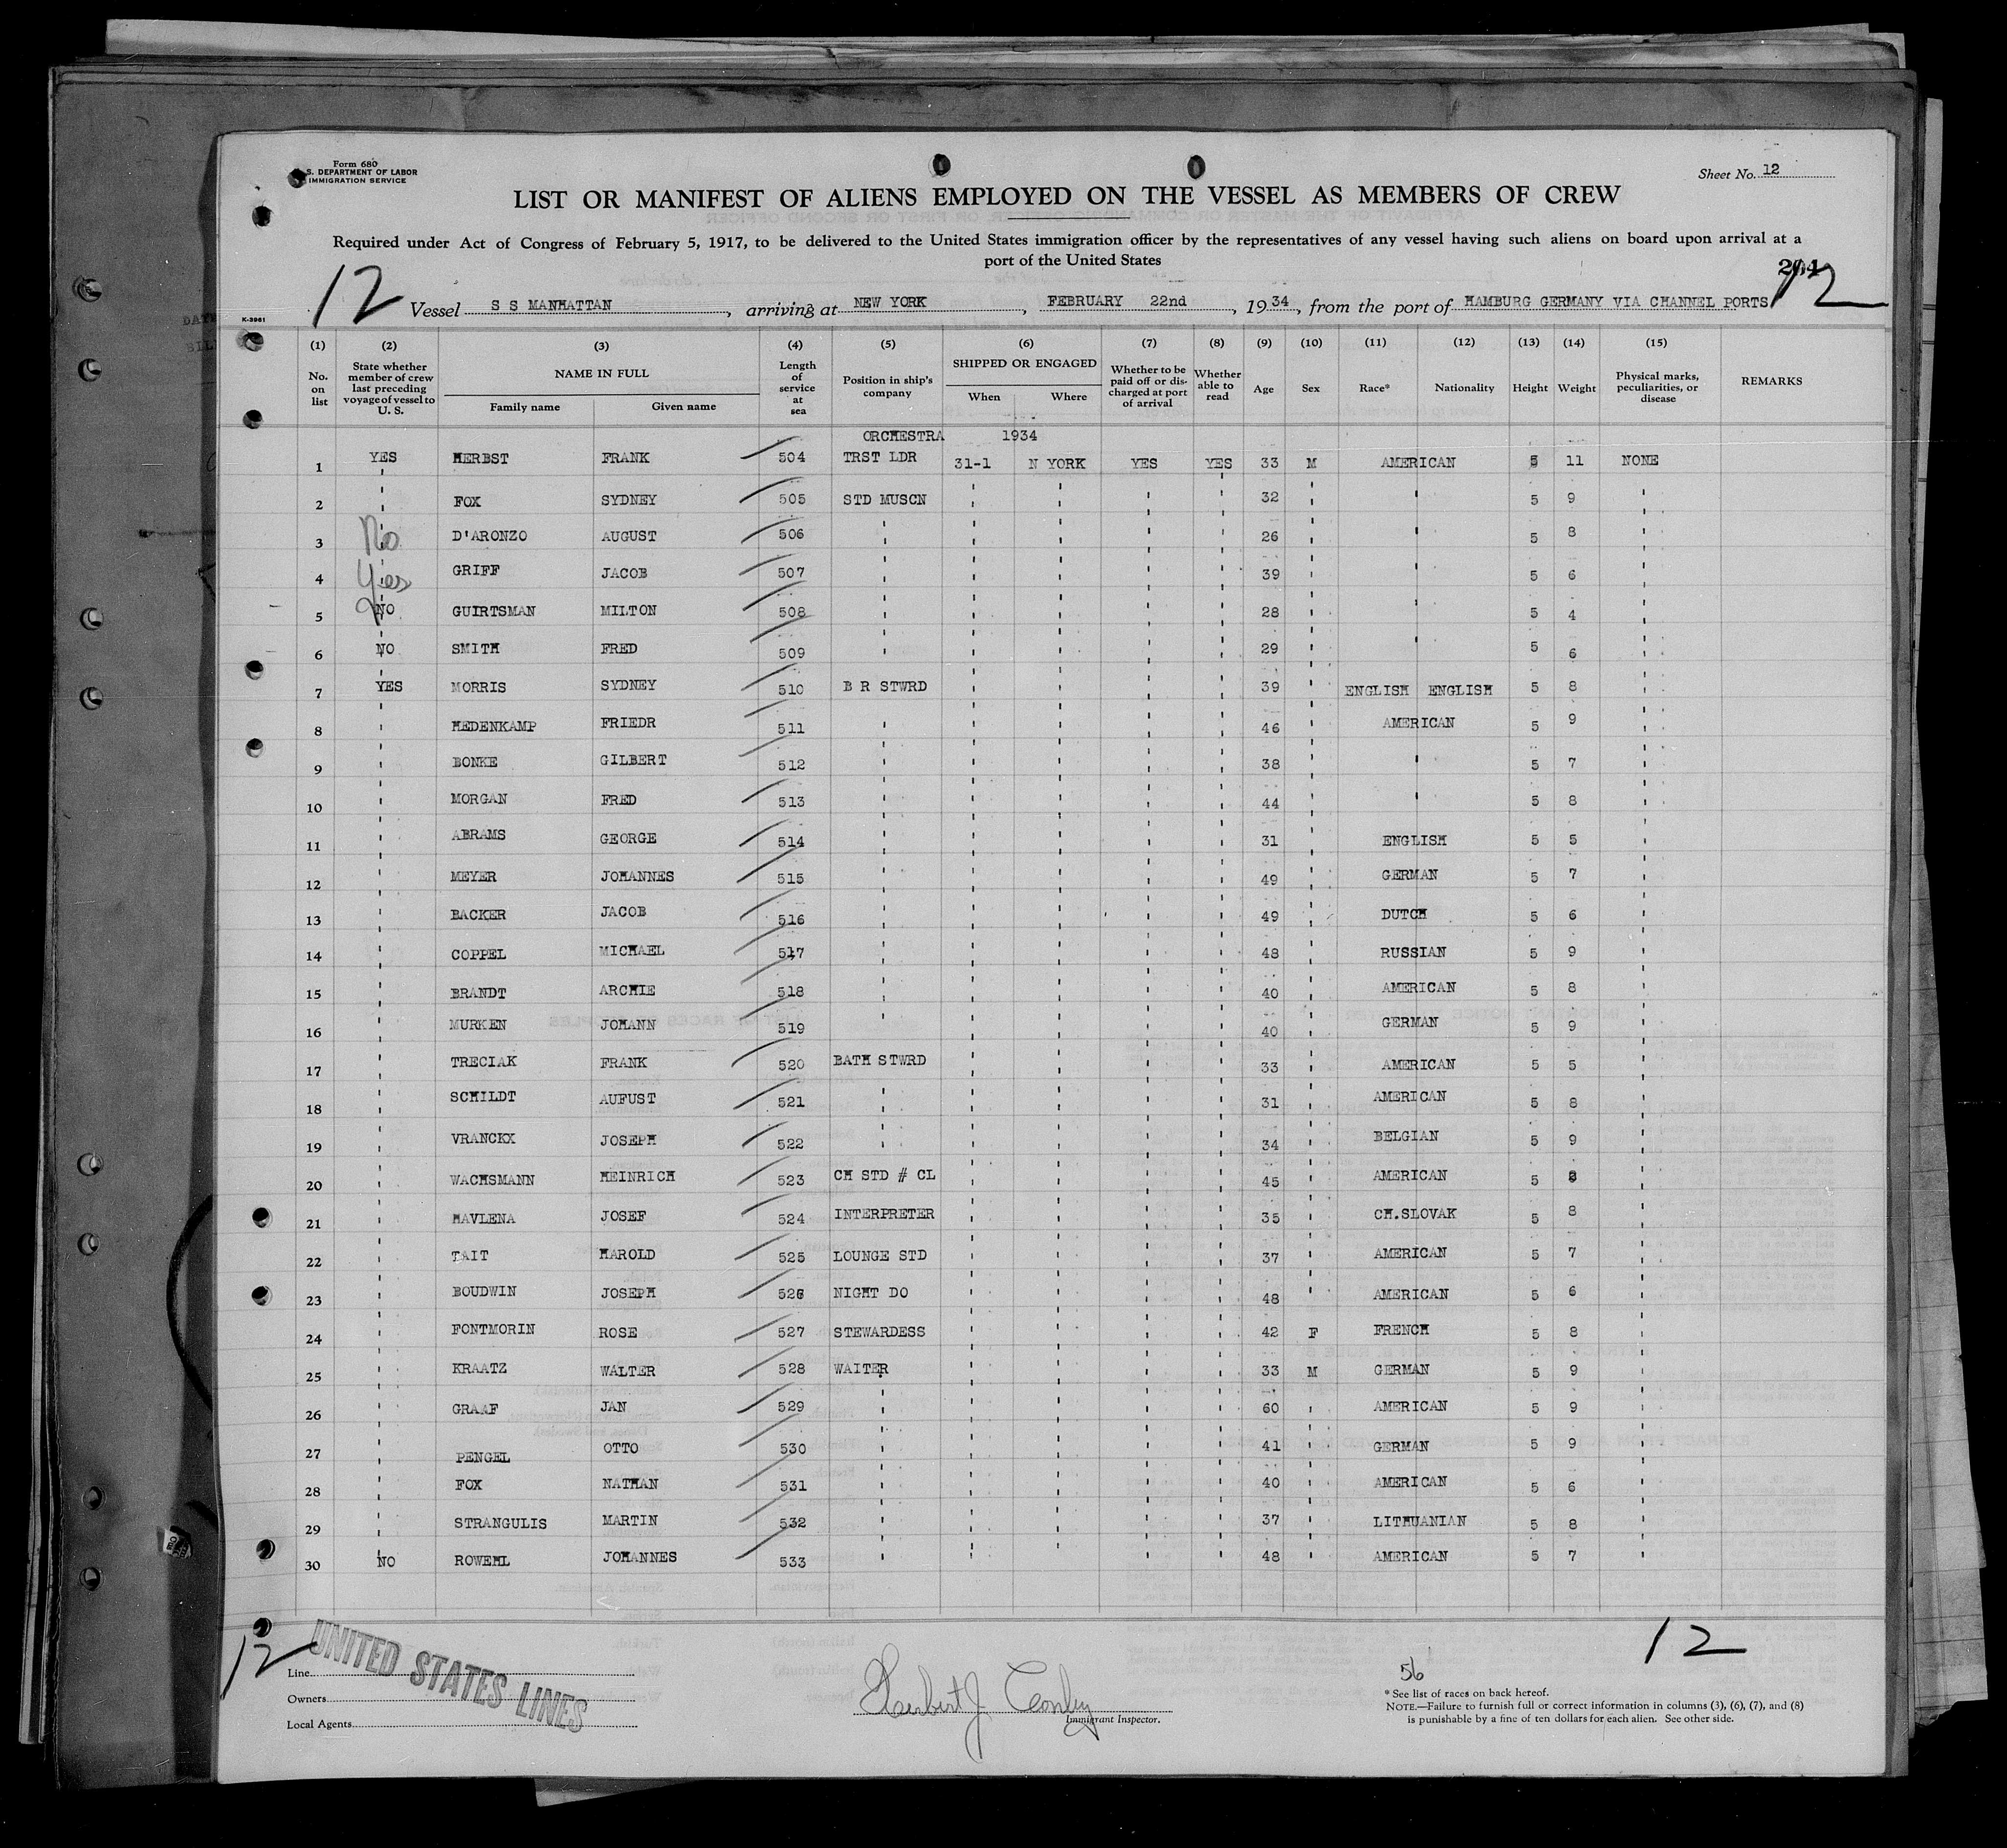 Form 680
S. DEPARTMENT OF LABOR
IMMIGRATION SERVICE
Sheet No. 12
LIST OR MANIFEST OF ALIENS EMPLOYED ON THE VESSEL AS MEMBERS OF CREW
Required under Act of Congress of February 5, 1917, to be delivered to the United States immigration officer by the representatives of any vessel having such aliens on board upon arrival at a
port of the United States
12 12
Vessel S S MANHATTAN, arriving at NEW YORK, FEBRUARY 22nd, 1934, from the port of HAMBURG GERMANY VIA CHANNEL PORTS
K-3961
(1) (2) (3) (4) (5) (6) (7) (8) (9) (10) (11) (12) (13) (14) (15)
No. on list State whether member of crew last preceding voyage of vessel to U. S. NAME IN FULL Length of service at sea Position in ship's company SHIPPED OR ENGAGED Whether to be paid off or discharged at port of arrival Whether able to read Age Sex Race* Nationality Height Weight Physical marks, peculiarities, or disease REMARKS
Family name Given name When Where
ORCHESTRA 1934
1 YES HERBST FRANK 504 TRST LDR 31-1 N YORK YES YES 33 M AMERICAN 5 11 NONE
2 " FOX SYDNEY 505 STD MUSCN " " " " 32 " " 5 9 "
3 No D'ARONZO AUGUST 506 " " " " " 26 " " 5 8 "
4 Yes GRIFF JACOB 507 " " " " " 39 " " 5 6 "
5 NO GUIRTSMAN MILTON 508 " " " " " 28 " " 5 4 "
6 NO SMITH FRED 509 " " " " " 29 " " 5 6 "
7 YES MORRIS SYDNEY 510 B R STWRD " " " " 39 " ENGLISH ENGLISH 5 8 "
8 " HEDENKAMP FRIEDR 511 " " " " " 46 " AMERICAN 5 9 "
9 " BONKE GILBERT 512 " " " " " 38 " " 5 7 "
10 " MORGAN FRED 513 " " " " " 44 " " 5 8 "
11 " ABRAMS GEORGE 514 " " " " " 31 " ENGLISH 5 5 "
12 " MEYER JOHANNES 515 " " " " " 49 " GERMAN 5 7 "
13 " BACKER JACOB 516 " " " " " 49 " DUTCH 5 6 "
14 " COPPEL MICHAEL 517 " " " " " 48 " RUSSIAN 5 9 "
15 " BRANDT ARCHIE 518 " " " " " 40 " AMERICAN 5 8 "
16 " MURKEN JOHANN 519 " " " " " 40 " GERMAN 5 9 "
17 " TRECIAK FRANK 520 BATH STWRD " " " " 33 " AMERICAN 5 5 "
18 " SCHILDT AUFUST 521 " " " " " 31 " AMERICAN 5 8 "
19 " VRANCKX JOSEPH 522 " " " " " 34 " BELGIAN 5 9 "
20 " WACHSMANN HEINRICH 523 CH STD # CL " " " " 45 " AMERICAN 5 8 "
21 " HAVLENA JOSEF 524 INTERPRETER " " " " 35 " CH.SLOVAK 5 8 "
22 " TAIT HAROLD 525 LOUNGE STD " " " " 37 " AMERICAN 5 7 "
23 " BOUDWIN JOSEPH 526 NIGHT DO " " " " 48 " AMERICAN 5 6 "
24 " FONTMORIN ROSE 527 STEWARDESS " " " " 42 F FRENCH 5 8 "
25 " KRAATZ WALTER 528 WAITER " " " " 33 M GERMAN 5 9 "
26 " GRAAF JAN 529 " " " " " 60 " AMERICAN 5 9 "
27 " PENGEL OTTO 530 " " " " " 41 " GERMAN 5 9 "
28 " FOX NATHAN 531 " " " " " 40 " AMERICAN 5 6 "
29 " STRANGULIS MARTIN 532 " " " " " 37 " LITHUANIAN 5 8 "
30 NO ROWEHL JOHANNES 533 " " " " " 48 " AMERICAN 5 7 "
12 12
UNITED STATES LINES
Line
Owners
Local Agents
Herbert J
Immigrant Inspector.
56
* See list of races on back hereof.
NOTE.—Failure to furnish full or correct information in columns (3), (6), (7), and (8)
is punishable by a fine of ten dollars for each alien. See other side.